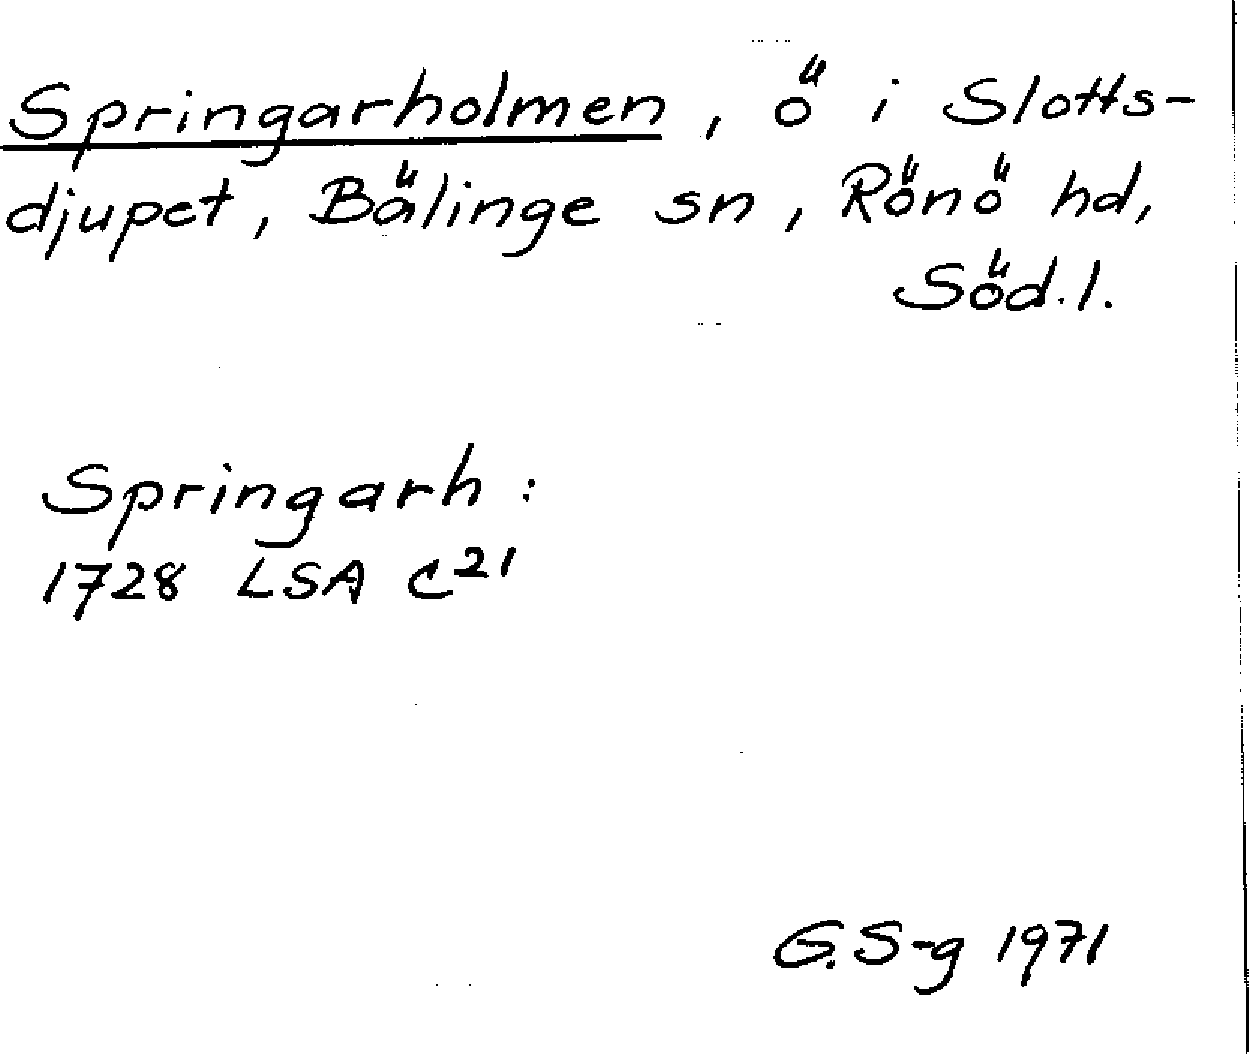 Springarholmen, ö i Slotts-
djupet, Bälinge sn, Rönö hd,
Söd.l.
Springarh:
1728 LSA C21
G.S-g 1971